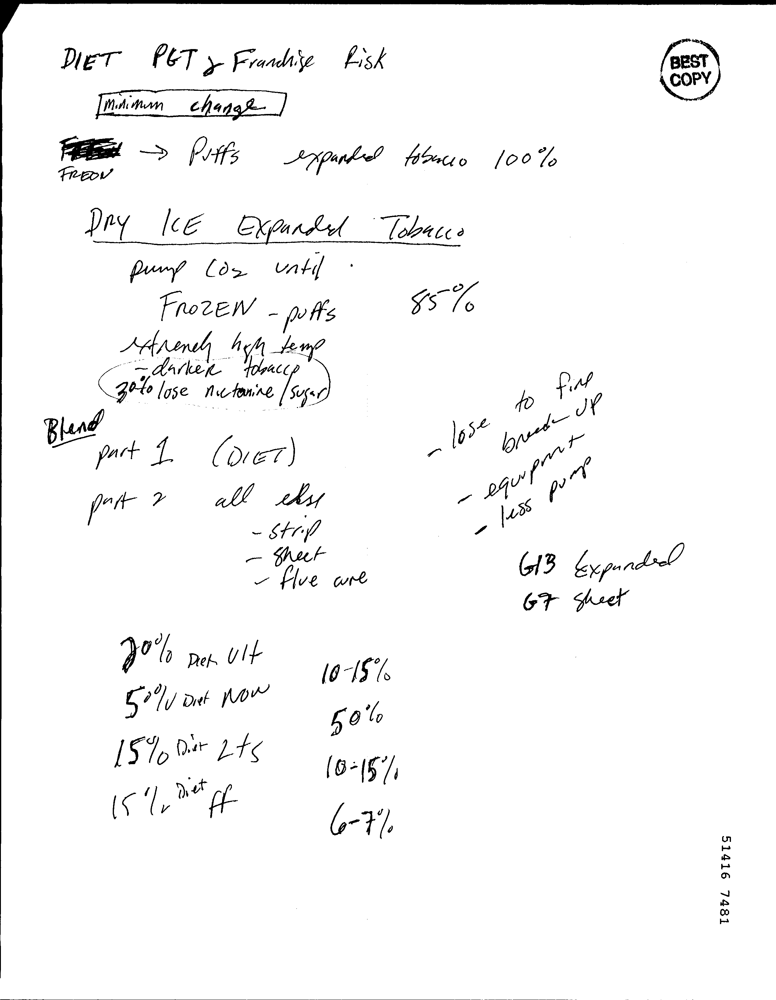 DIET PGT & Franchise Risk
BEST COPY
minimum change
FREON → Puffs expanded tobacco 100%
DRY ICE Expanded Tobacco
pump CO2 until
FROZEN - puffs 85%
extremely high temp
- darker tobacco
30% lose nictonine/sugar
Blend
part 1 (DIET)
part 2 all else
- strip
- sheet
- flue cure
- lose to fine
break up
- equipment
- less pump
G13 Expanded
G7 Sheet
20% Diet Ult 10-15%
50% Diet NOW 50%
15% Diet Lts 10-15%
15% Diet ff 6-7%
51416 7481